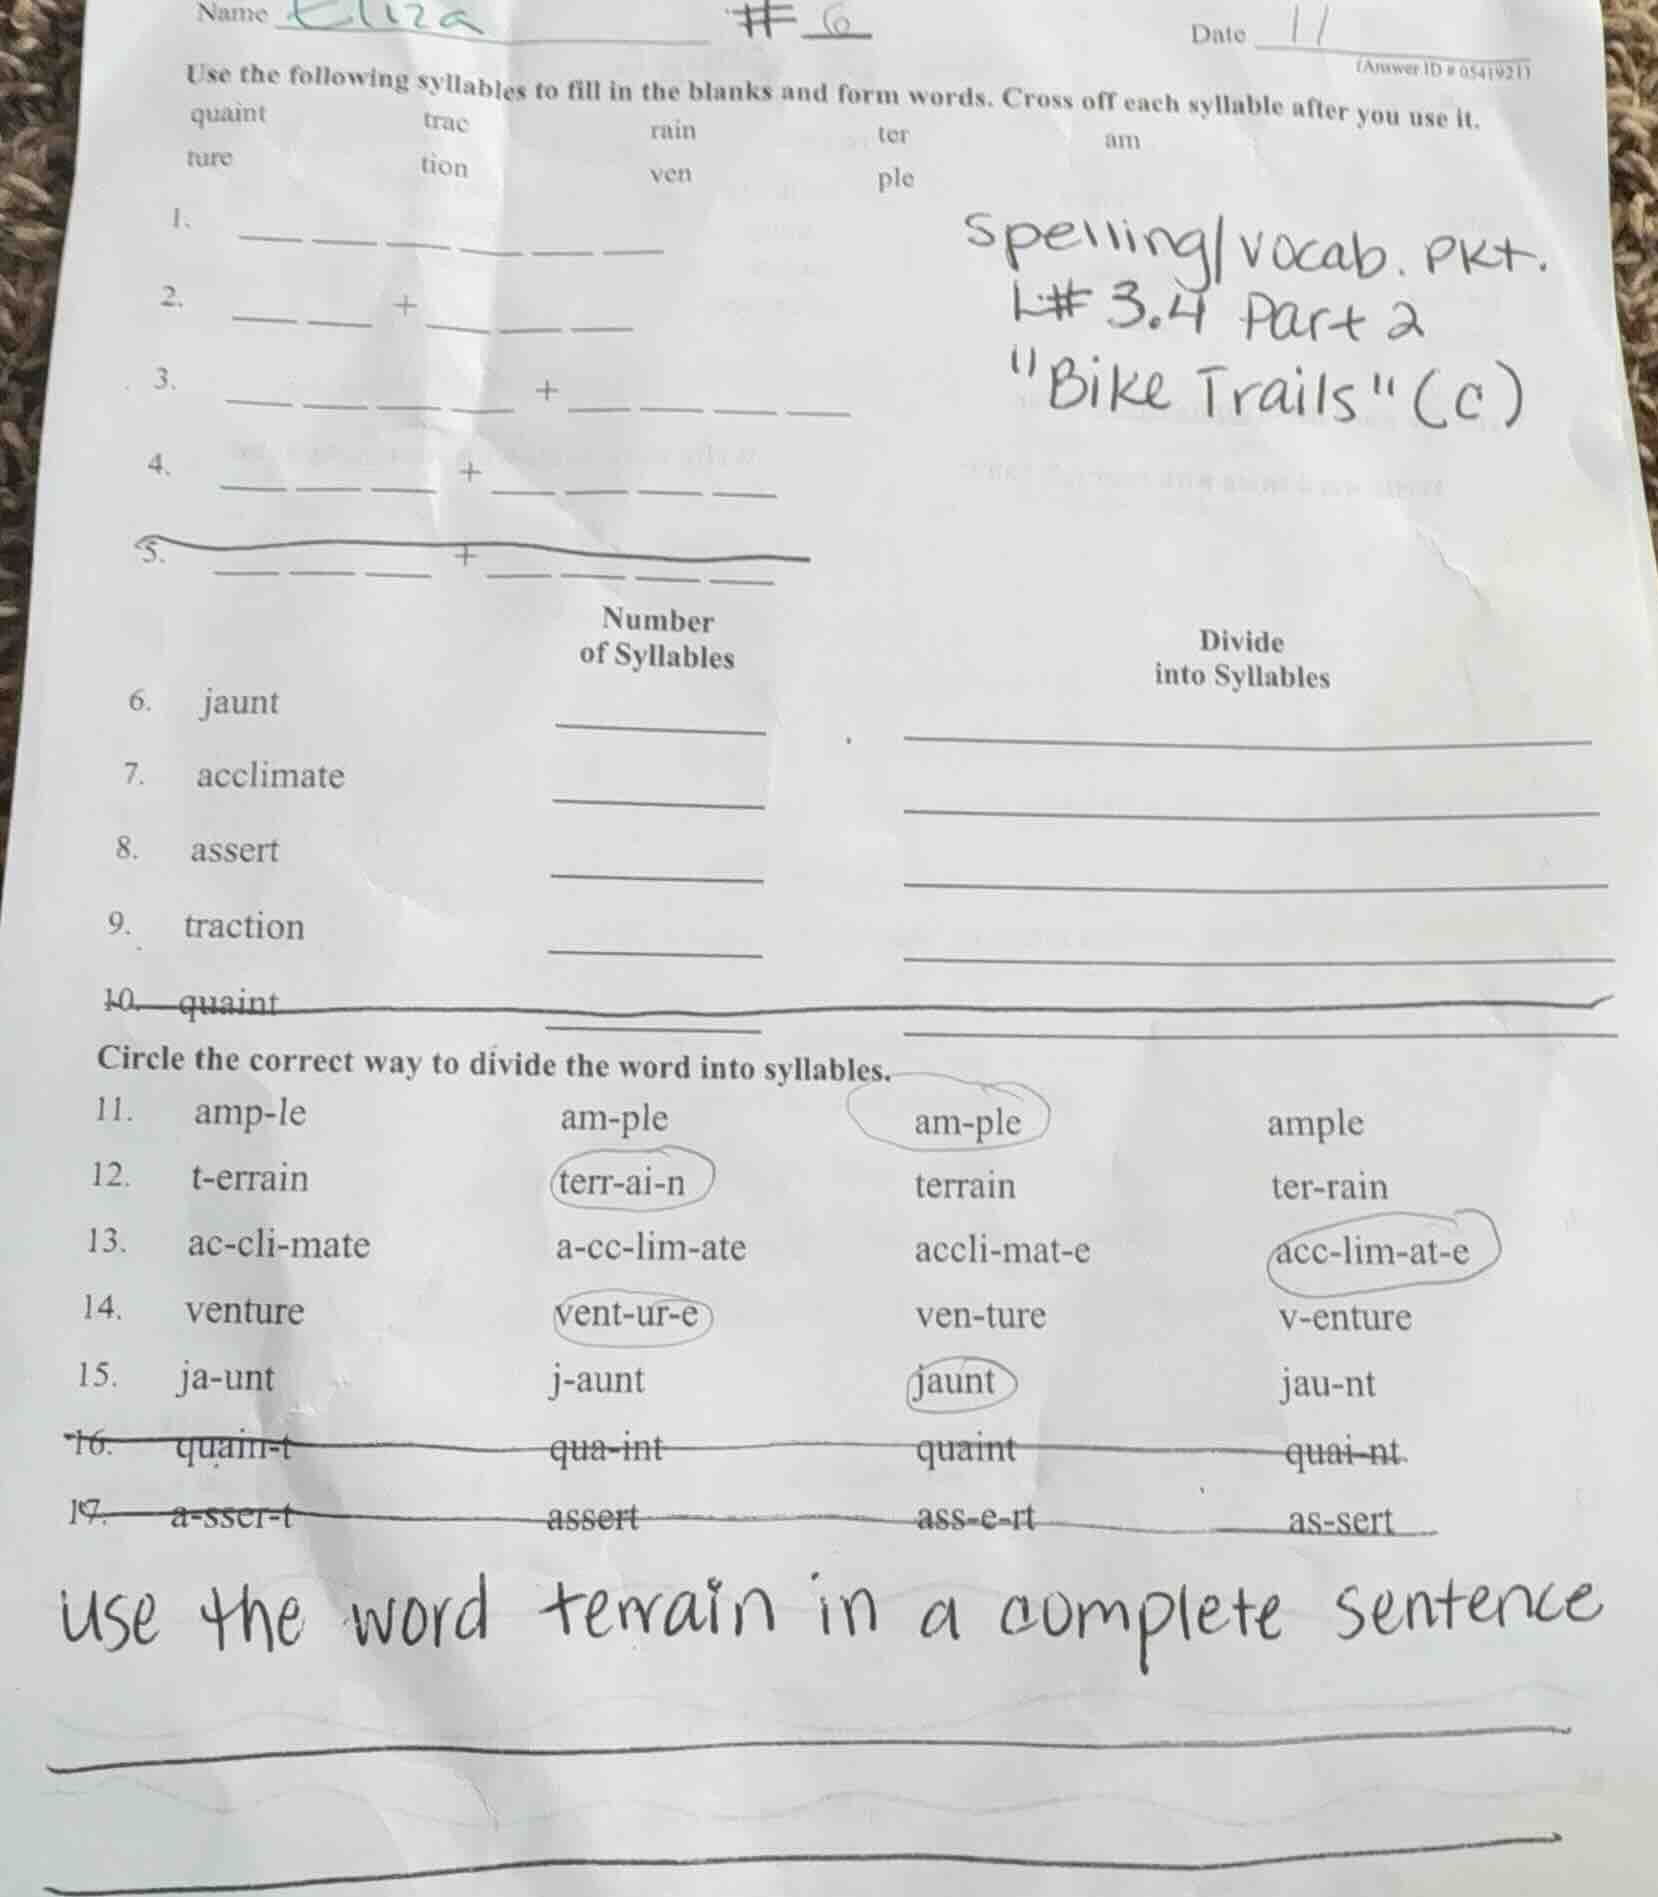 Name Eliza # 6 Date 11
(Answer ID # 0541921)
Use the following syllables to fill in the blanks and form words. Cross off each syllable after you use it.
quaint trac rain ter am
ture tion ven ple
1. __ __ __ __ __ __
2. __ __ + __ __ __
3. __ __ __ __ + __ __ __ __
4. __ __ __ + __ __ __ __
5. __ __ __ + __ __ __ __
Spelling/vocab. PKt.
L# 3.4 Part 2
"Bike Trails" (C)
Number
of Syllables
Divide
into Syllables
6. jaunt
7. acclimate
8. assert
9. traction
10. quaint
Circle the correct way to divide the word into syllables.
11. amp-le am-ple am-ple ample
12. t-errain terr-ai-n terrain ter-rain
13. ac-cli-mate a-cc-lim-ate accli-mat-e acc-lim-at-e
14. venture vent-ur-e ven-ture v-enture
15. ja-unt j-aunt jaunt jau-nt
16. quain-t qua-int quaint quai-nt
17. a-sser-t assert ass-e-rt as-sert
use the word terrain in a complete sentence